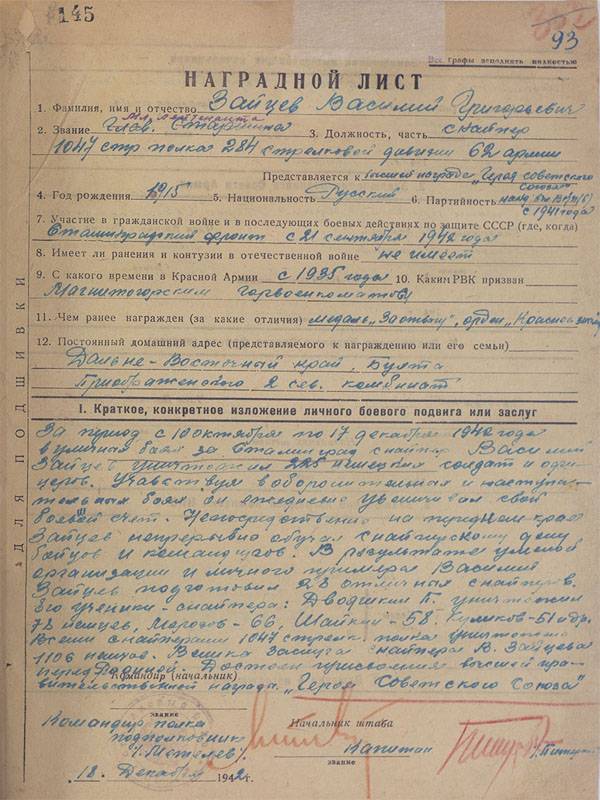 145
93
Все графы заполнять полностью
НАГРАДНОЙ ЛИСТ
1. Фамилия, имя и отчество Зайцев Василий Григорьевич
Мл. лейтенанта
2. Звание Глав. старшина 3. Должность, часть снайпер
1047 стр полка 284 стрелковой дивизии 62 армии
Представляется к высшей награде "Герой советского Союза"
4. Год рождения 1915 5. Национальность Русский 6. Партийность
с 1941 года
7. Участие в гражданской войне и в последующих боевых действиях по защите СССР (где, когда)
Сталинградский фронт с 21 сентября 1942 года
8. Имеет ли ранения и контузии в отечественной войне не имеет
9. С какого времени в Красной Армии с 1935 года 10. Каким РВК призван
Магнитогорским горвоенкоматом
11. Чем ранее награжден (за какие отличия) медаль "За отвагу", орден "Красное знамя"
12. Постоянный домашний адрес (представляемого к награждению или его семьи)
Дальне-Восточный край, Бухта
Приображенского 2 сев. комбинат
I. Краткое, конкретное изложение личного боевого подвига или заслуг
За период с 10 октября по 17 декабря 1942 года
в уличных боях за Сталинград снайпер Василий
Зайцев уничтожил 225 немецких солдат и офи-
церов. Учавствуя в оборонительных и наступа-
тельных боях он ежедневно увеличивал свой
боевой счет. Непосредственно на переднем крае
Зайцев непрерывно обучал снайперскому делу
бойцов и командиров. В результате умелой
организации и личного примера Василий
Зайцев подготовил 28 отличных снайперов.
Его ученики-снайпера: Двояшкин П. уничтожил
78 немцев, Морозов-66, Шайкин-58, Куликов-51 и др.
Всеми снайперами 1047 стрелк. полка уничтожено
1106 немцев. Велика заслуга снайпера В. Зайцева
перед Родиной. Достоин присвоения высшей пра-
вительственной награды "Героя Советского Союза"
Командир (начальник)
звание
Командир полка
подполковник
/Метелев/
Начальник штаба
Капитан
звание
/Питерск
18 Декабря 1942 г.
ДЛЯ ПОДШИВКИ